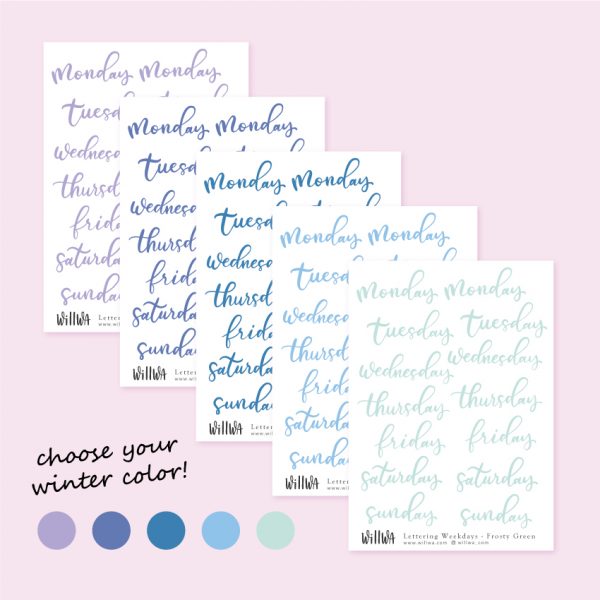 monday monday
tuesd
wednes
thursd
frid
saturda
sunda
WillWa Letterin
www.willw
monday monday
tuesd
wednesd
thursd
frid
saturda
sunda
WillWa Letterin
www.willw
monday monday
tuesd
wednesd
thursd
frid
saturda
sunda
WillWa Letterin
www.willw
monday monday
tuesd
wednesd
thursd
frid
saturda
sunda
WillWa Letterin
www.willw
monday monday
tuesday tuesday
wednesday wednesday
thursday thursday
friday friday
saturday saturday
sunday sunday
WillWa Lettering Weekdays - Frosty Green
www.willwa.com @willwa_com
choose your
winter color!